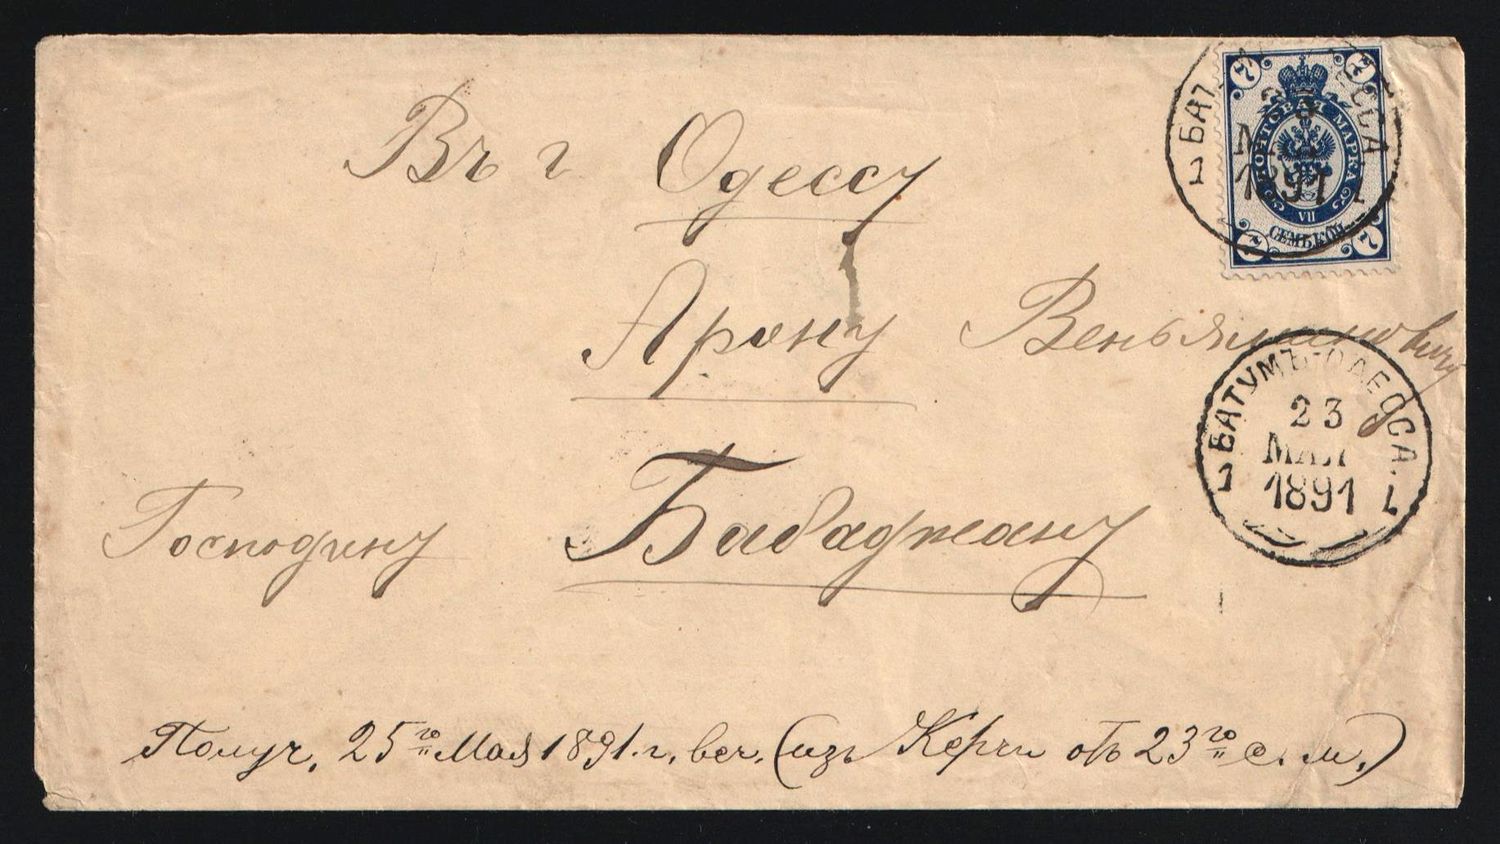 Въ г Одессу
Арону Веньяминовичу
Господину Бабаджану
Получ. 25го Мая 1891 г. веч. (изъ Керчи отъ 23го с. м.)
7 7
ПОЧТОВАЯ МАРКА
VII
СЕМЬ КОП.
7 7
БАТУМЪ-ОДЕССА
1891
БАТУМЪ-ОДЕССА.
23
МАЯ
1891